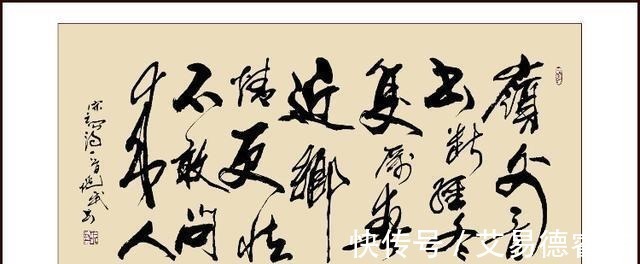 嶺外音
书断经冬
复历春
近鄉
情更怯
不敢问
来人
宋之问诗一首
快传号/艾易德睿